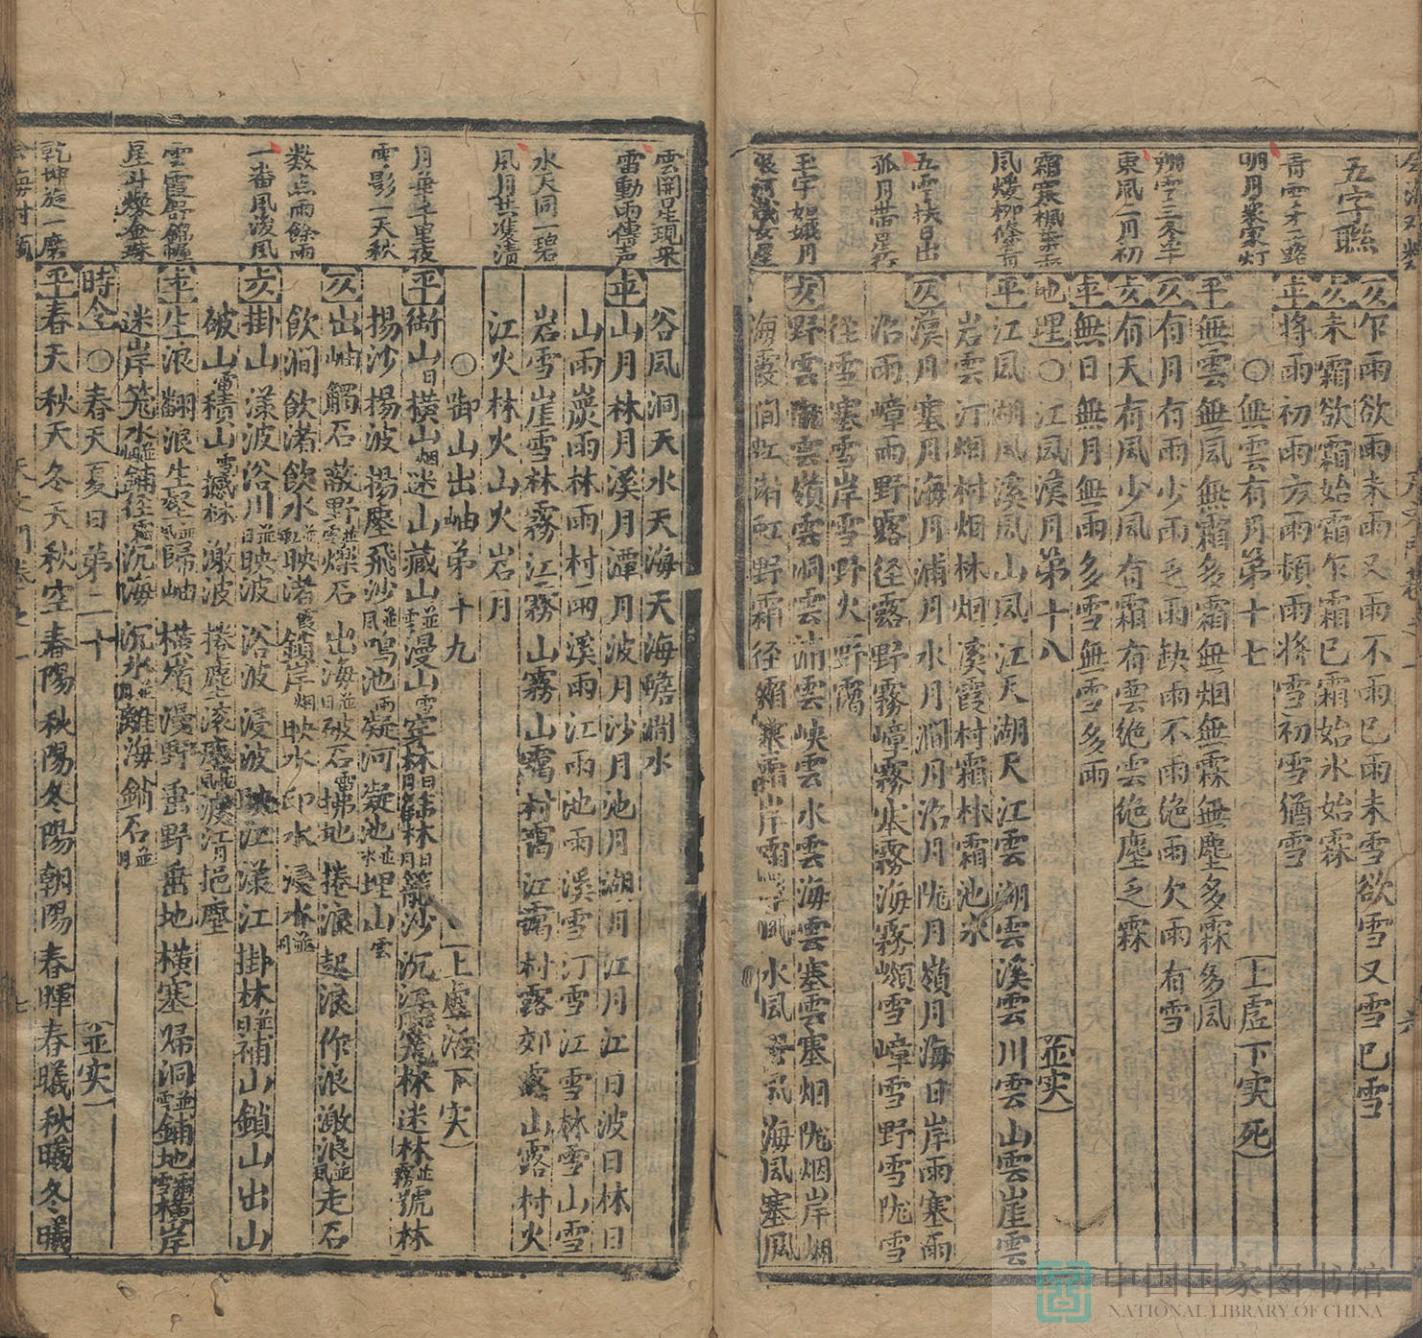 五字聯
青雲才一路
明月衆家灯
東風八月初
孤月帯星
五雲扶日出
玉宇如娥月
仄 乍雨欲雨未雨又雨不雨已雨未雪欲雪又雪已雪
仄 未霜欲霜始霜乍霜已霜始氷始霖
平 将雨初雨方雨頓雨将雪初雪猶雪
〇無雲有月第十七 上虚下实死
平 無雲無風無霜多霜無烟無霖無塵多霖多風
仄 有月有雨少雨乏雨缺雨不雨絶雨欠雨有雪
仄 有天有風少風有霜有雲絶雲絶塵乏霖
平 無日無月無雨多雪無雪多雨
地理〇江風漠月第十八 並实
平 江風湖風溪風山風江天湖天江雲湖雲溪雲川雲山雲崖雲
岩雲汀烟村烟林烟溪霞村霜林霜池氷
仄 漠月塞月海月浦月水月澗月沼月隴月嶺月海日岸雨塞雨
沼雨嶂雨野露径露野霧嶂霧海霧嶺雪嶂雪野雪隴雪
径雪塞雪岸雪野火野靄
仄 野雲隴雲嶺雲洞雲浦雲峽雲水雲海雲塞雲塞烟隴烟岸烟
海霞澗虹野霜径霜岸霜水風海風塞風
雲開星現采
雷動雨傳声
水天同一碧
風月共凄清
月華千里夜
雲影一天秋
数点雨餘雨
一番風後風
星斗燦金珠
乾坤旋一磨
谷風洞天水天海天海蟾澗水
平 山月林月溪月潭月波月沙月池月湖月江月江日波日林日
山雨岩雨林雨村雨溪雨江雨池雨溪雪汀雪江雪林雪山雪
岩雪崖雪林霧江霧山霧山靄村靄江靄村露郊露山露村火
江火林火山火岩月
〇啣山出岫弟十九 上虚活下实
平 啣山日横山烟迷山藏山並雲漫山雪穿林日篭沙沉江篭林迷林並霧號林
揚沙揚波揚塵飛沙並風鳴池雨凝河凝池並氷埋山雲
仄 出岫觸石蔽野並雲爍石出海並日破石雷拂地捲浪起浪作浪激浪並風走石
飲澗飲渚飲水並虹映渚霞鎖岸烟映水印水浸水並月
仄 掛山漾波浴川並日映波浴波浸波映江漾江掛林並日補山鎖山出山
破山雷積山雪撼林激波捲塵滚塵並風渡江月挹塵
平 生浪翻浪生怒並風歸岫横嶺漫野垂野垂地横塞帰洞並雲鋪地雪横岸
迷岸篭水並烟鋪径霜沉海沉水並月離海銷石並月
時令〇春天夏日弟二十 並实
平 春天秋天冬天秋空春陽秋陽冬陽朝陽春暉春曦秋曦冬曦
中国国家图书馆
NATIONAL LIBRARY OF CHINA